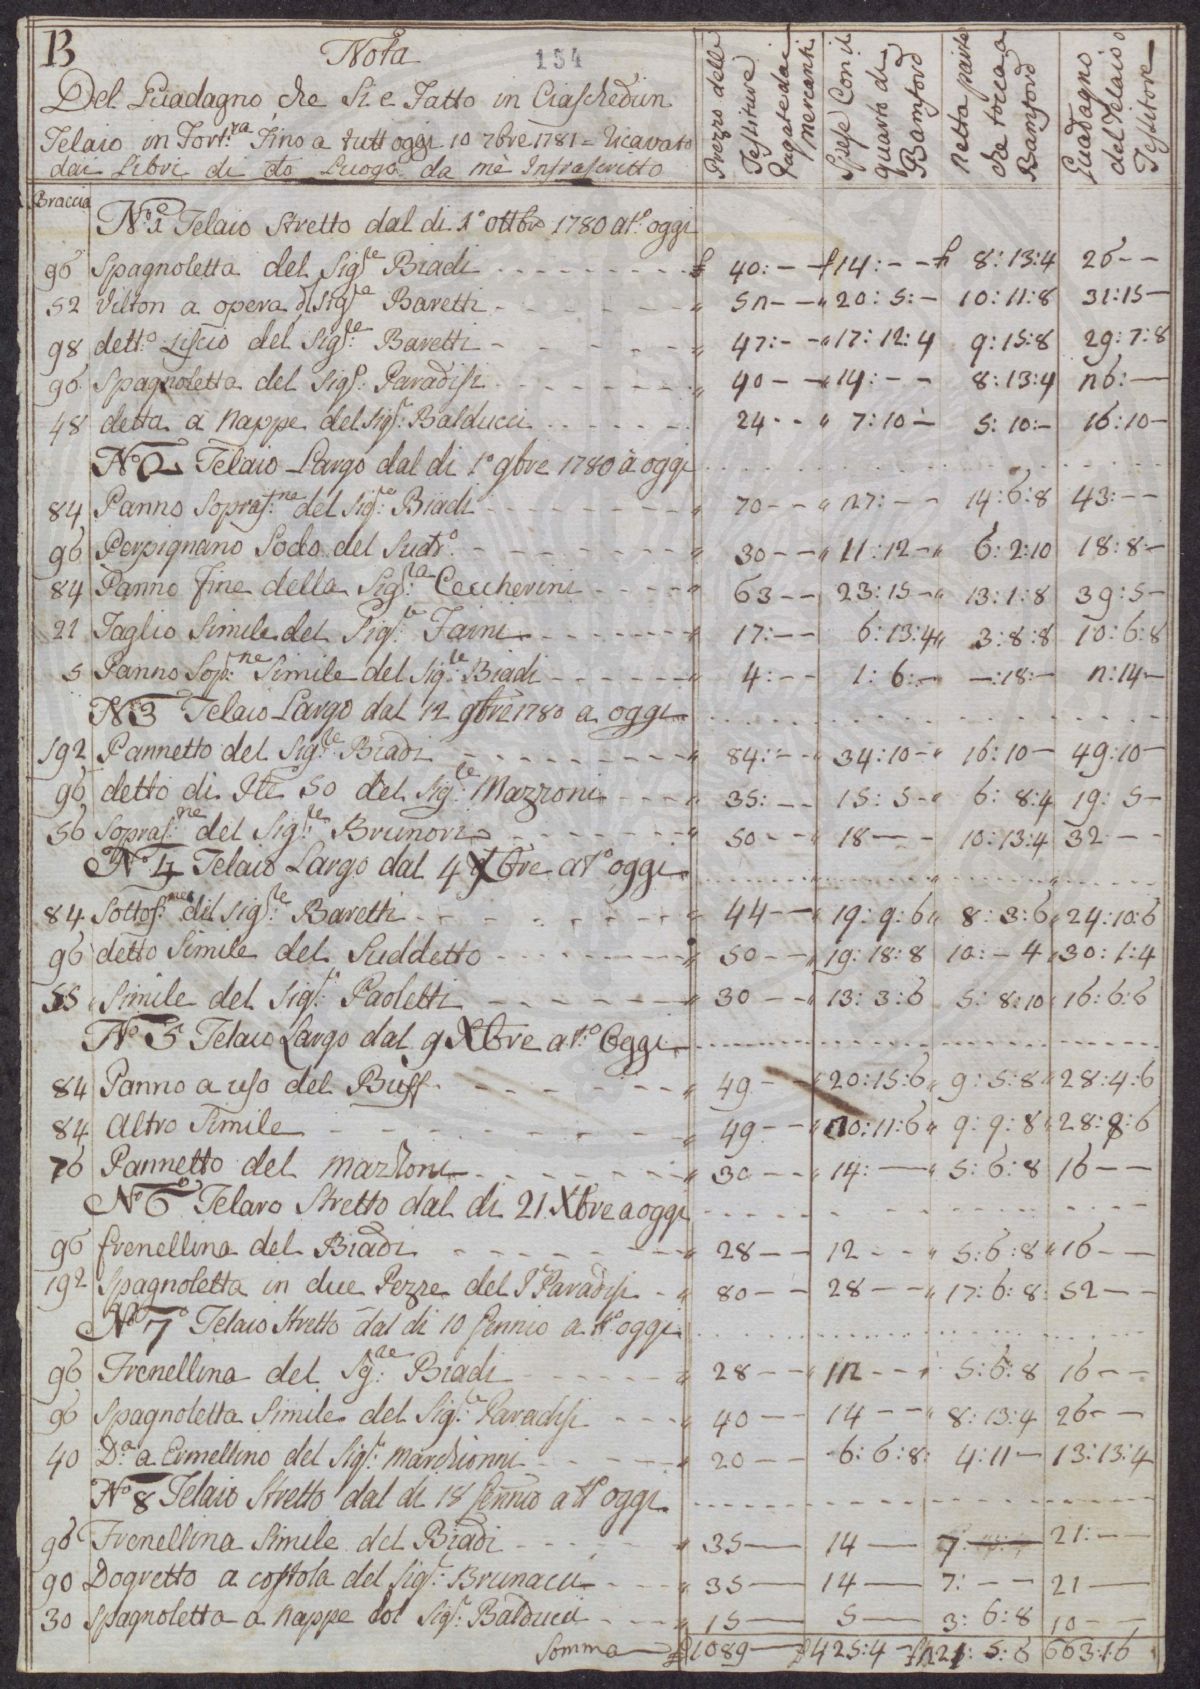 B
Nota
134
Del Guadagno che si e Fatto in Ciaschedun
Telaio in Fort.za Fino a tutt oggi 10 7bre 1781 = Ricavato
dai Libri di do Luogo da mè Infrascritto
Prezzo delle Tessiture Pagate dai Mercanti
Spese Con il quarto di Bamford
Netta parte che tocca a Bamford
Guadagno del Telaio o Tessitore
Braccia
No 1 Telaio Stretto dal di 1o ottbre 1780 a to oggi
96 Spagnoletta del Sigre Biadi £ 40:-- £ 14:-- £ 8:13:4 26--
52 Vilton a opera d Sigre Baretti " 52-- " 20:5:- 10:11:8 31:15-
98 detto Liscio del Sigre Baretti " 47:-- " 17:12:4 9:15:8 29:7:8
96 Spagnoletta del Sigr: Paradisi " 40-- " 14:-- 8:13:4 26:--
48 detta a Nappe del Sigr: Balducci 24-- " 7:10- 5:10:- 16:10-
No 2 Telaio Largo dal di 1o 9bre 1780 à oggi
84 Panno Sopraf:ne del Sigre Biadi " 70-- " 27:-- 14:6:8 43:--
96 Perpignano Sodo del Sudo " 30-- " 11:12- " 6:2:10 18:8-
84 Panno fine della Sigra Ceccherini " 63-- 23:15- " 13:1:8 39:5-
21 Taglio Simile del Sigre Faini " 17:-- 6:13:4 " 3:8:8 10:6:8
5 Panno Sop:ne Simile del Sigre Biadi " 4:-- 1:6:- -:18:- 2:14-
No 3 Telaio Largo dal 12 9bre 1780 a oggi
192 Pannetto del Sigre Biadi " 84:-- 34:10- " 16:10- 49:10-
96 detto di 50 del Sigre Mazzoni " 35:-- 15:5- " 6:8:4 19:5-
56 Sopraf:ne del Sigre Brunori " 50-- " 18-- 10:13:4 32--
No 4 Telaio Largo dal 4 Xbre a to oggi
84 Sottof:ne del Sigre Baretti " 44-- " 19:9:6 " 8:3:6 " 24:10:6
96 detto Simile del Suddetto " 50-- " 19:18:8 10:-4 " 30:1:4
55 Simile del Sigr: Paoletti " 30-- " 13:3:6 5:8:10 " 16:6:6
No 5 Telaio Largo dal 9 Xbre a to Oggi
84 Panno a uso del Buff " 49- " 20:15:6 " 9:5:8 " 28:4:6
84 Altro Simile " 49-- " 20:11:6 " 9:9:8 " 28:8:6
76 Pannetto del Mazzoni " 30-- " 14:-- " 5:6:8 16--
No 6 Telaro Stretto dal di 21 Xbre a oggi
96 frenellina del Biadi " 28-- 12-- " 5:6:8 " 16--
192 Spagnoletta in due Pezze del Paradisi " 80-- 28-- " 17:6:8 52--
No 7 Telaio Stretto dal di 10 Gennio a to oggi
96 Frenellina del Sigre Biadi " 28-- " 12-- 5:6:8 16--
96 Spagnoletta Simile del Sigre Paradisi " 40-- 14-- " 8:13:4 26--
40 Da a Ermellino del Sigr: Marchionni " 20-- 6:6:8 4:11- 13:13:4
No 8 Telaio Stretto dal di 18 Gennio a to oggi
96 Frenellina Simile del Biadi " 35-- 14-- 7:-- 21:--
90 Dogretto a costola del Sigr: Brunacci " 35-- 14-- 7:-- 21--
30 Spagnoletta a Nappe del Sigr: Balducci " 15-- 5-- 3:6:8 10--
Somma £ 1089- £ 425:4- £ 221:5:6 663:16